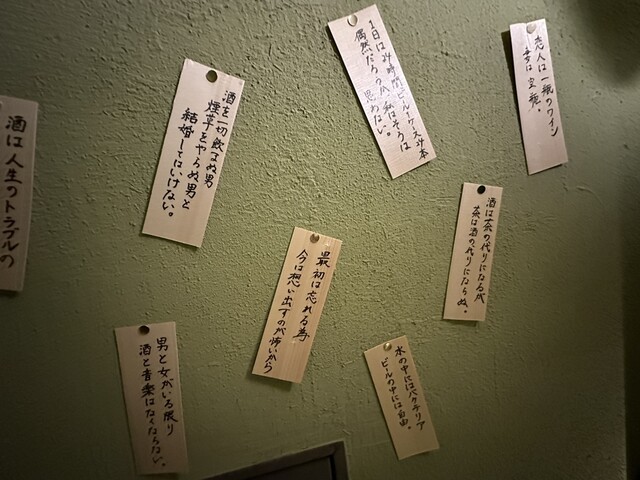 酒は人生のトラブルの
酒を一切飲まぬ男
煙草をやらぬ男と
結婚してはいけない。
1日は24時間ビール1ケース24本
偶然だろうが私はそうは
思わない。
恋人は一瓶のワイン
妻は空瓶。
酒は茶の代りになるが
茶は酒の代りにならぬ。
最初は忘れる為
今は想い出すのが怖いから
男と女がいる限り
酒と音楽はなくならない。
水の中にはバクテリア
ビールの中には自由。